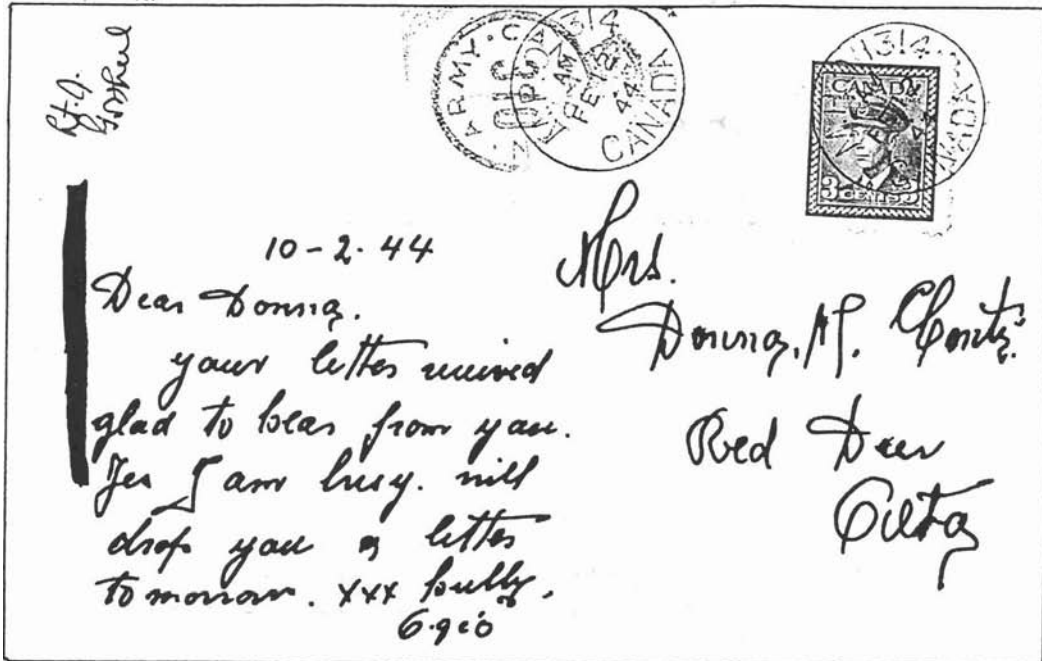 Lt. A.
ARMY · CAN
314
AM
FE 12
44
CANADA
314
CANADA
3 CENTS 3
10-2-44
Dear Donna.
your letter received
glad to hear from you.
Yes I am busy. will
drop you a letter
tomorrow. xxx
Mrs.
Donna, M.
Red Deer
Alta